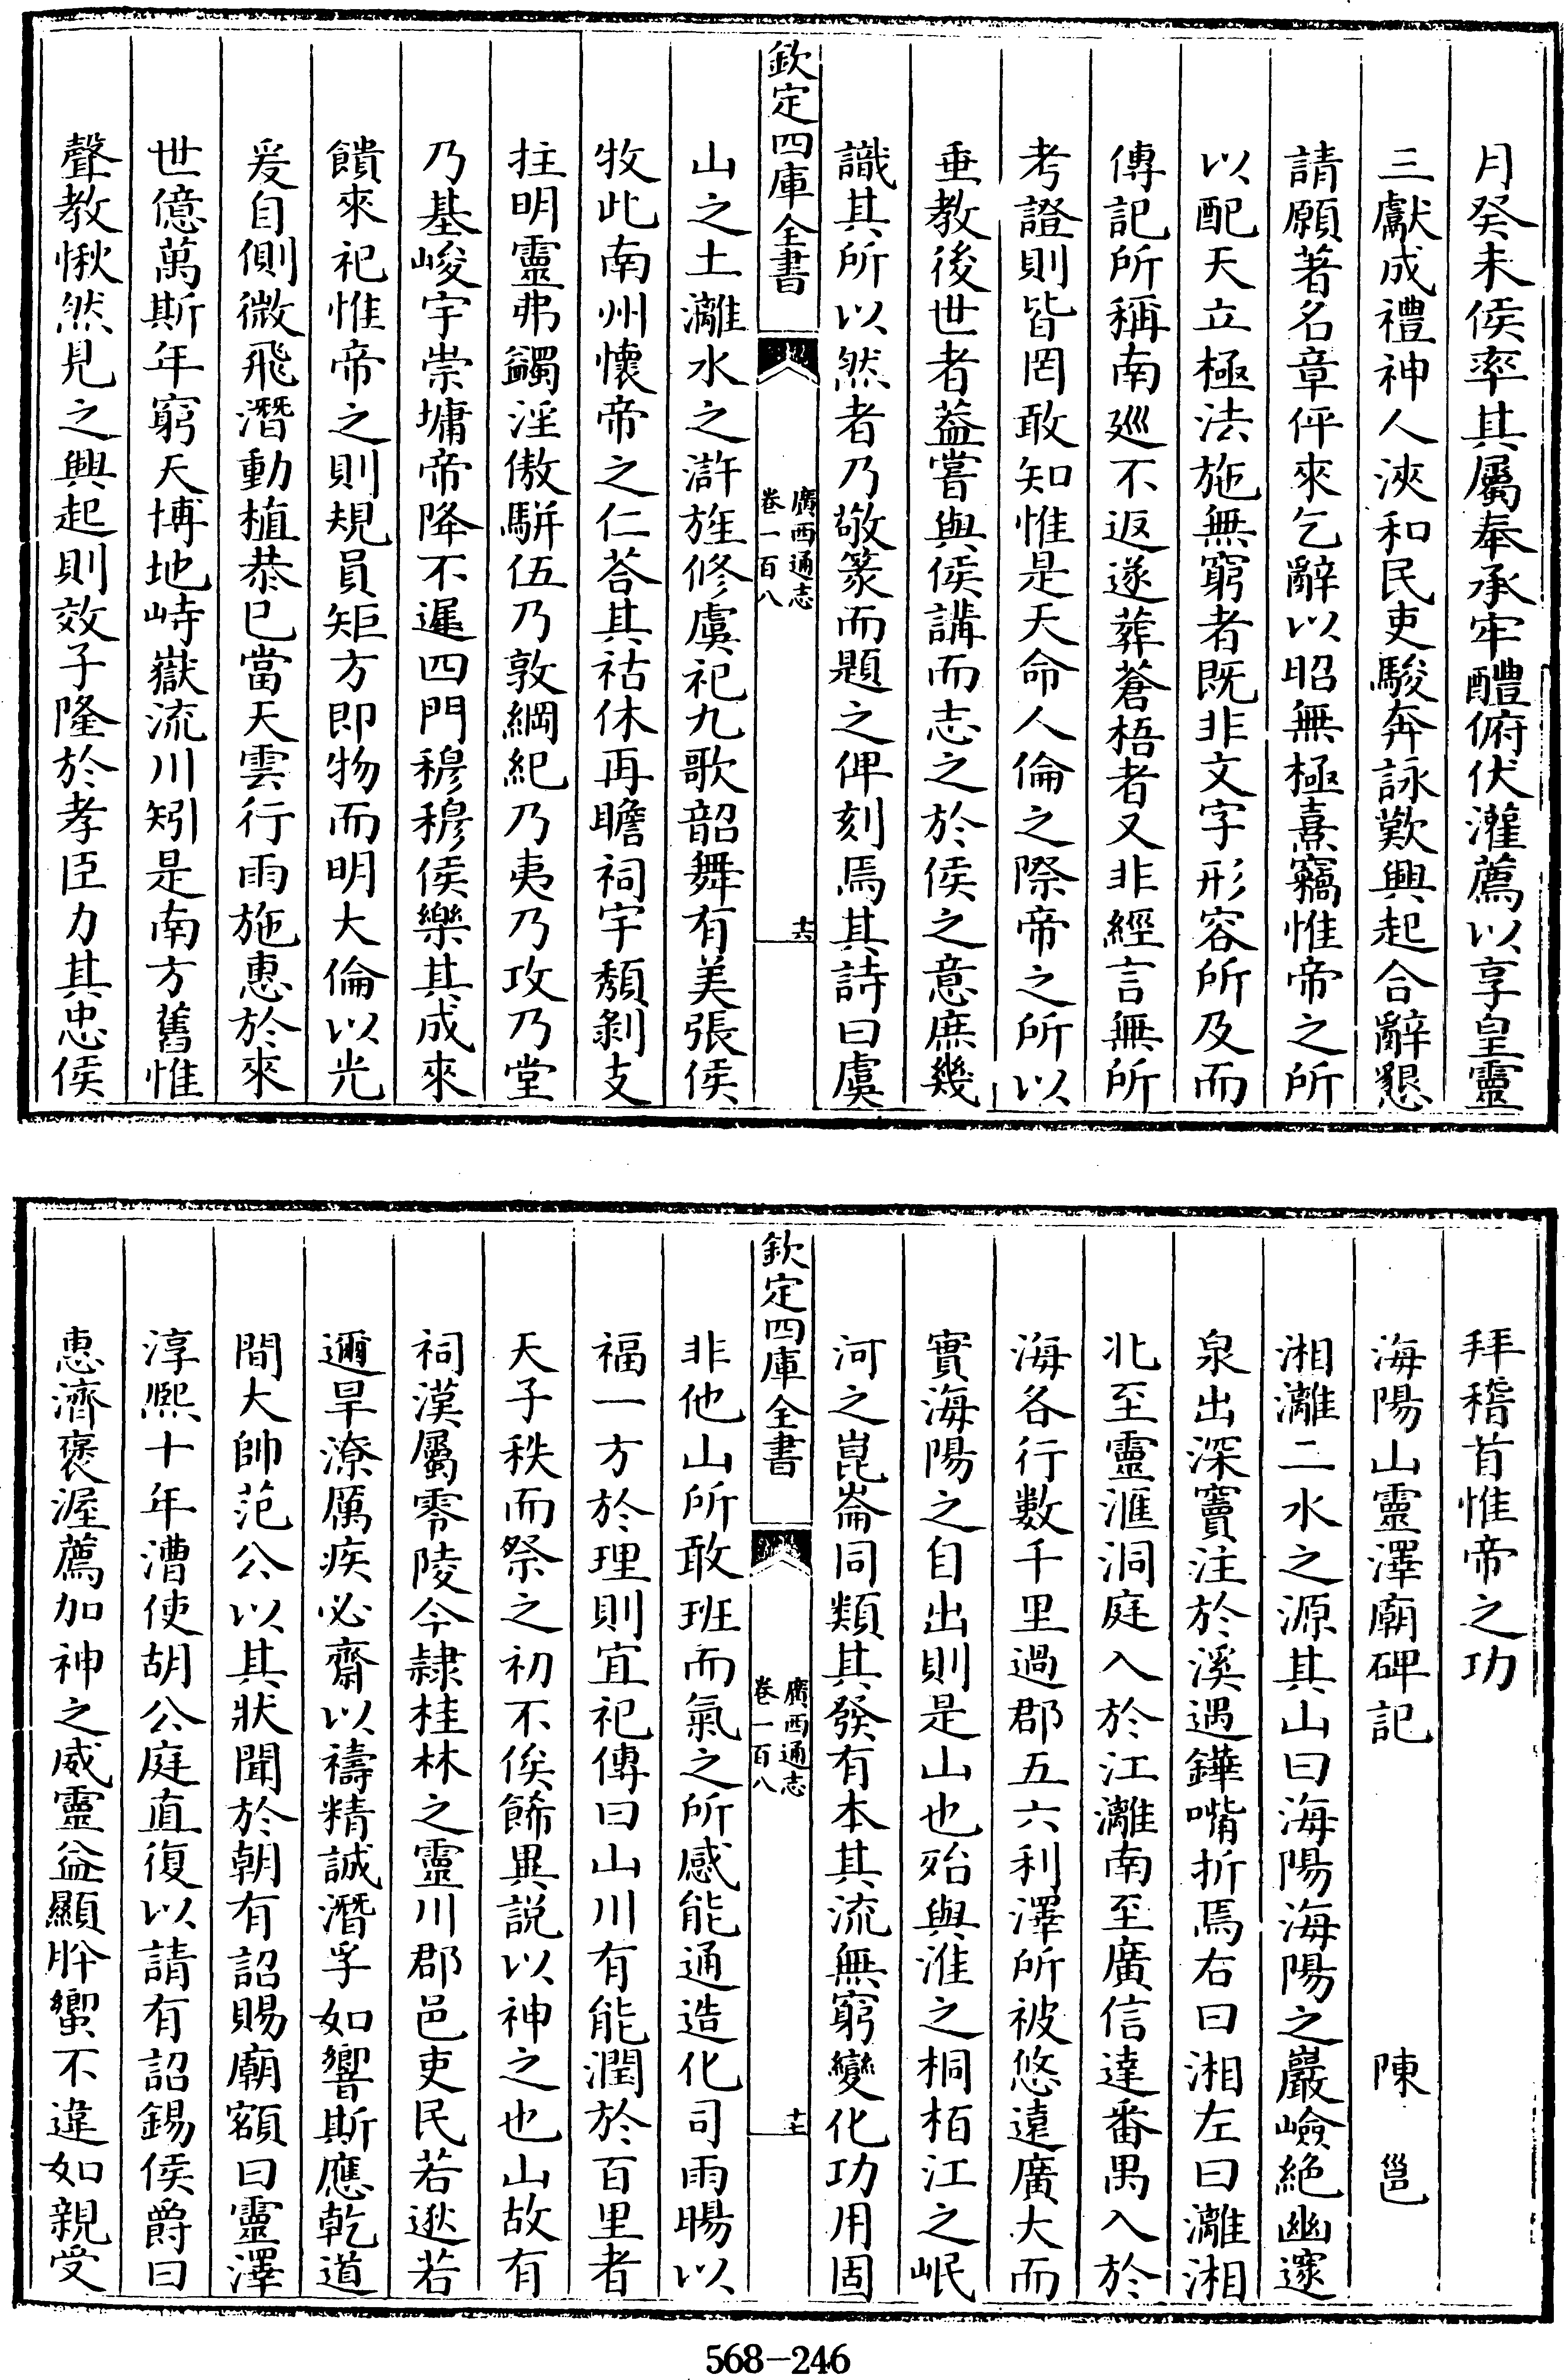 月癸未侯率其屬奉承牢醴俯伏灌薦以享皇靈
三獻成禮神人浹和民吏駿奔詠歎興起合辭懇
請願著名章伻來乞辭以昭無極熹竊惟帝之所
以配天立極法施無窮者既非文字形容所及而
傳記所稱南廵不返遂葬蒼梧者又非經言無所
考證則皆罔敢知惟是天命人倫之際帝之所以
垂教後世者葢嘗與侯講而志之於侯之意庶幾
識其所以然者乃敬篆而題之俾刻焉其詩曰虞
欽定四庫全書
廣西通志
卷一百八
十六
山之土灕水之滸旌修虞祀九歌韶舞有美張侯
牧此南州懷帝之仁荅其祜休再瞻祠宇頽剝支
拄明靈弗蠲淫傲駢伍乃敦綱紀乃夷乃攻乃堂
乃基峻宇崇墉帝降不遲四門穆穆侯樂其成來
饋來祀惟帝之則規員矩方即物而明大倫以光
爰自側微飛潛動植恭已當天雲行雨施惠於來
世億萬斯年窮天博地峙嶽流川矧是南方舊惟
聲教愀然見之興起則效子隆於孝臣力其忠侯
拜稽首惟帝之功
海陽山靈澤廟碑記 陳邕
湘灕二水之源其山曰海陽海陽之巖嶮絶幽邃
泉出深竇注於溪遇鏵嘴折焉右曰湘左曰灕湘
北至靈滙洞庭入於江灕南至廣信達番禺入於
海各行數千里過郡五六利澤所被悠遠廣大而
實海陽之自出則是山也殆與淮之桐栢江之岷
河之崑崙同類其發有本其流無窮變化功用固
欽定四庫全書
廣西通志
卷一百八
十七
非他山所敢班而氣之所感能通造化司雨暘以
福一方於理則宜祀傳曰山川有能潤於百里者
天子秩而祭之初不俟餙異説以神之也山故有
祠漢屬零陵今隷桂林之靈川郡邑吏民若逖若
邇旱潦厲疾必齋以禱精誠潛孚如響斯應乾道
間大帥范公以其狀聞於朝有詔賜廟額曰靈澤
淳熙十年漕使胡公庭直復以請有詔錫侯爵曰
惠濟褒渥薦加神之威靈益顯肸蠁不違如親受
568-246